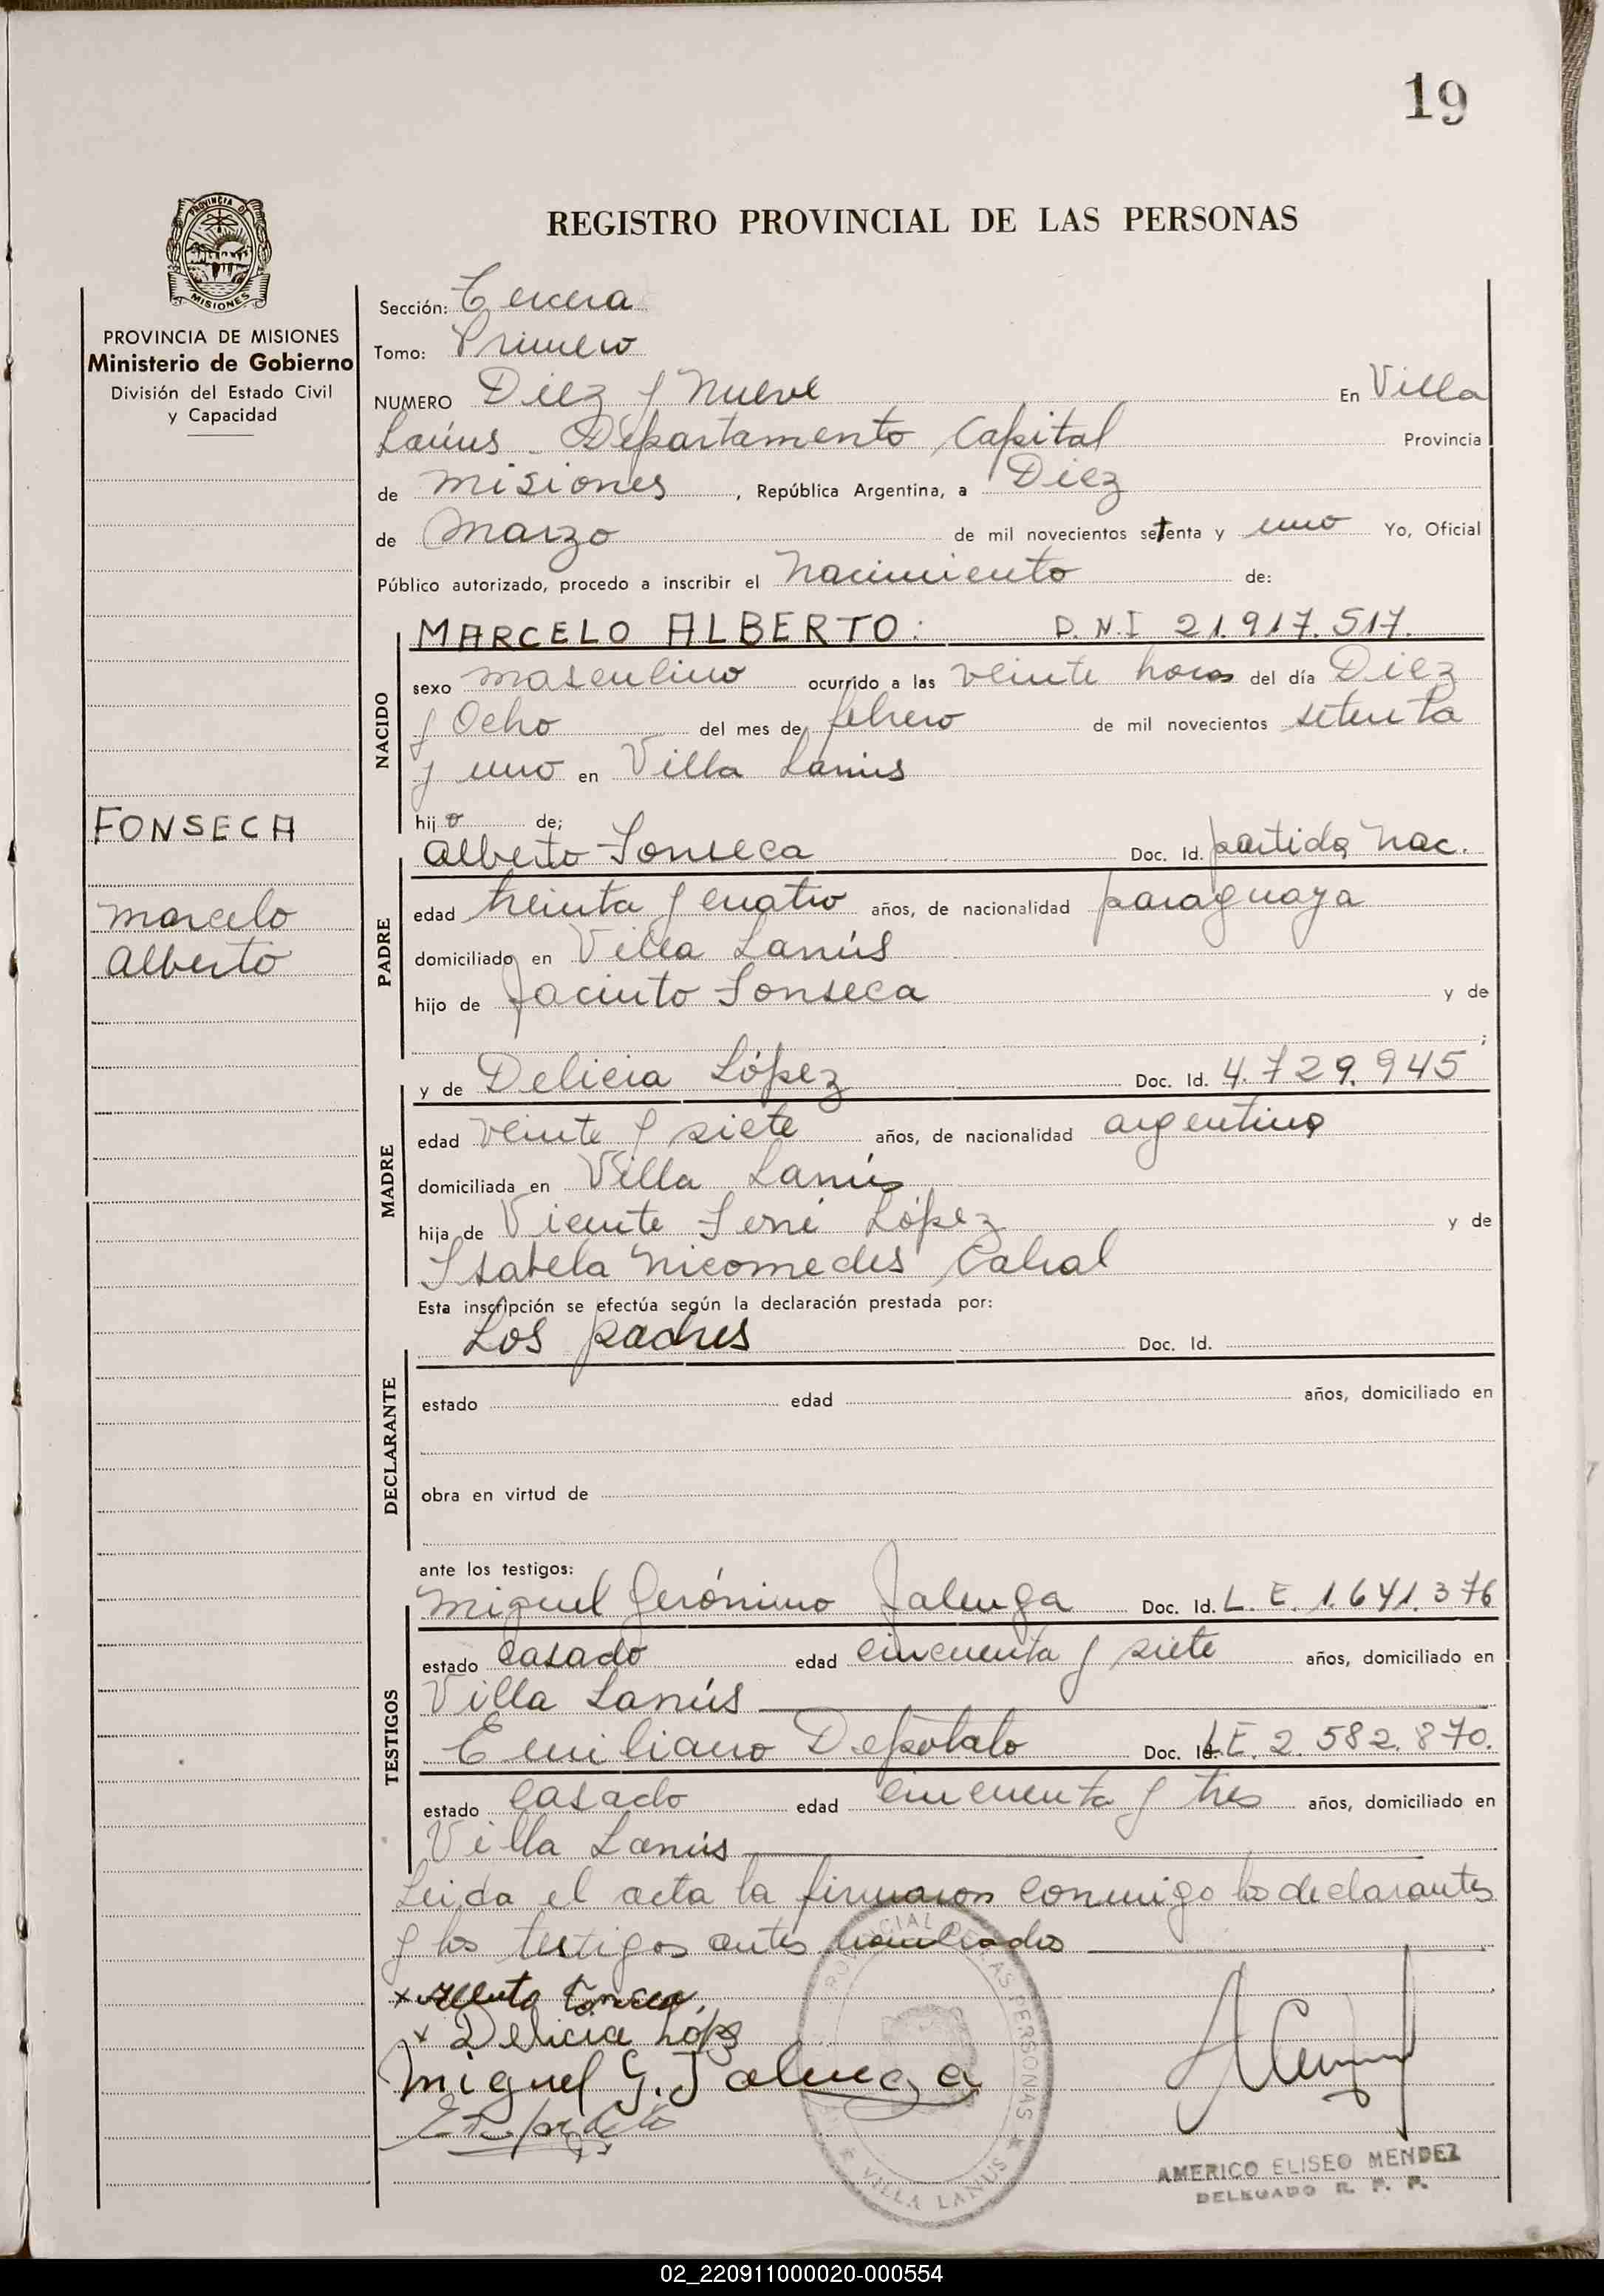 19
PROVINCIA DE
MISIONES
PROVINCIA DE MISIONES
Ministerio de Gobierno
División del Estado Civil
y Capacidad
FONSECA
Marcelo
Alberto
REGISTRO PROVINCIAL DE LAS PERSONAS
Sección: Tercera
Tomo: Primero
NUMERO Diez y Nueve En Villa
Lanús - Departamento Capital Provincia
de Misiones, República Argentina, a Diez
de Marzo de mil novecientos setenta y uno Yo, Oficial
Público autorizado, procedo a inscribir el Nacimiento de:
NACIDO
MARCELO ALBERTO: D.N.I 21.917.517.
sexo masculino ocurrido a las veinte horas del día Diez
y Ocho del mes de febrero de mil novecientos setenta
y uno en Villa Lanús
hijo de;
PADRE
Alberto Fonseca Doc. Id. partida Nac.
edad treinta y cuatro años, de nacionalidad paraguaya
domiciliado en Villa Lanús
hijo de Jacinto Fonseca y de
;
MADRE
y de Delicia López Doc. Id. 4.729.945
edad veinte y siete años, de nacionalidad argentina
domiciliada en Villa Lanús
hija de Vicente López y de
Isabela Nicomedes Cabral
Esta inscripción se efectúa según la declaración prestada por:
DECLARANTE
Los padres Doc. Id.
estado edad años, domiciliado en
obra en virtud de
ante los testigos:
TESTIGOS
Miguel Gerónimo Jalenga Doc. Id. L.E. 1.641.376
estado casado edad cincuenta y siete años, domiciliado en
Villa Lanús
Emiliano Doc. Id. L.E. 2.582.870.
estado casado edad cincuenta y tres años, domiciliado en
Villa Lanús
Leida el acta la firmaron conmigo los declarantes
y los testigos antes nombrados
x Fonseca.
x Delicia López
Miguel G. Jalenga
PROVINCIAL DE LAS PERSONAS
VILLA LANUS
AMERICO ELISEO MENDEZ
DELEGADO R. P. P.
02_220911000020-000554